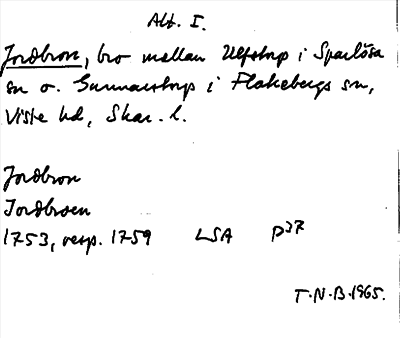 Alt. I.
Jordbron, bro mellan Ulfstorp i Sparlösa
sn o. Gunnarstorp i Flakebergs sn,
Viste hd, Skar. l.
Jordbron
Jordbroen
1753, resp. 1759 LSA P37
T.N.B. 1965.